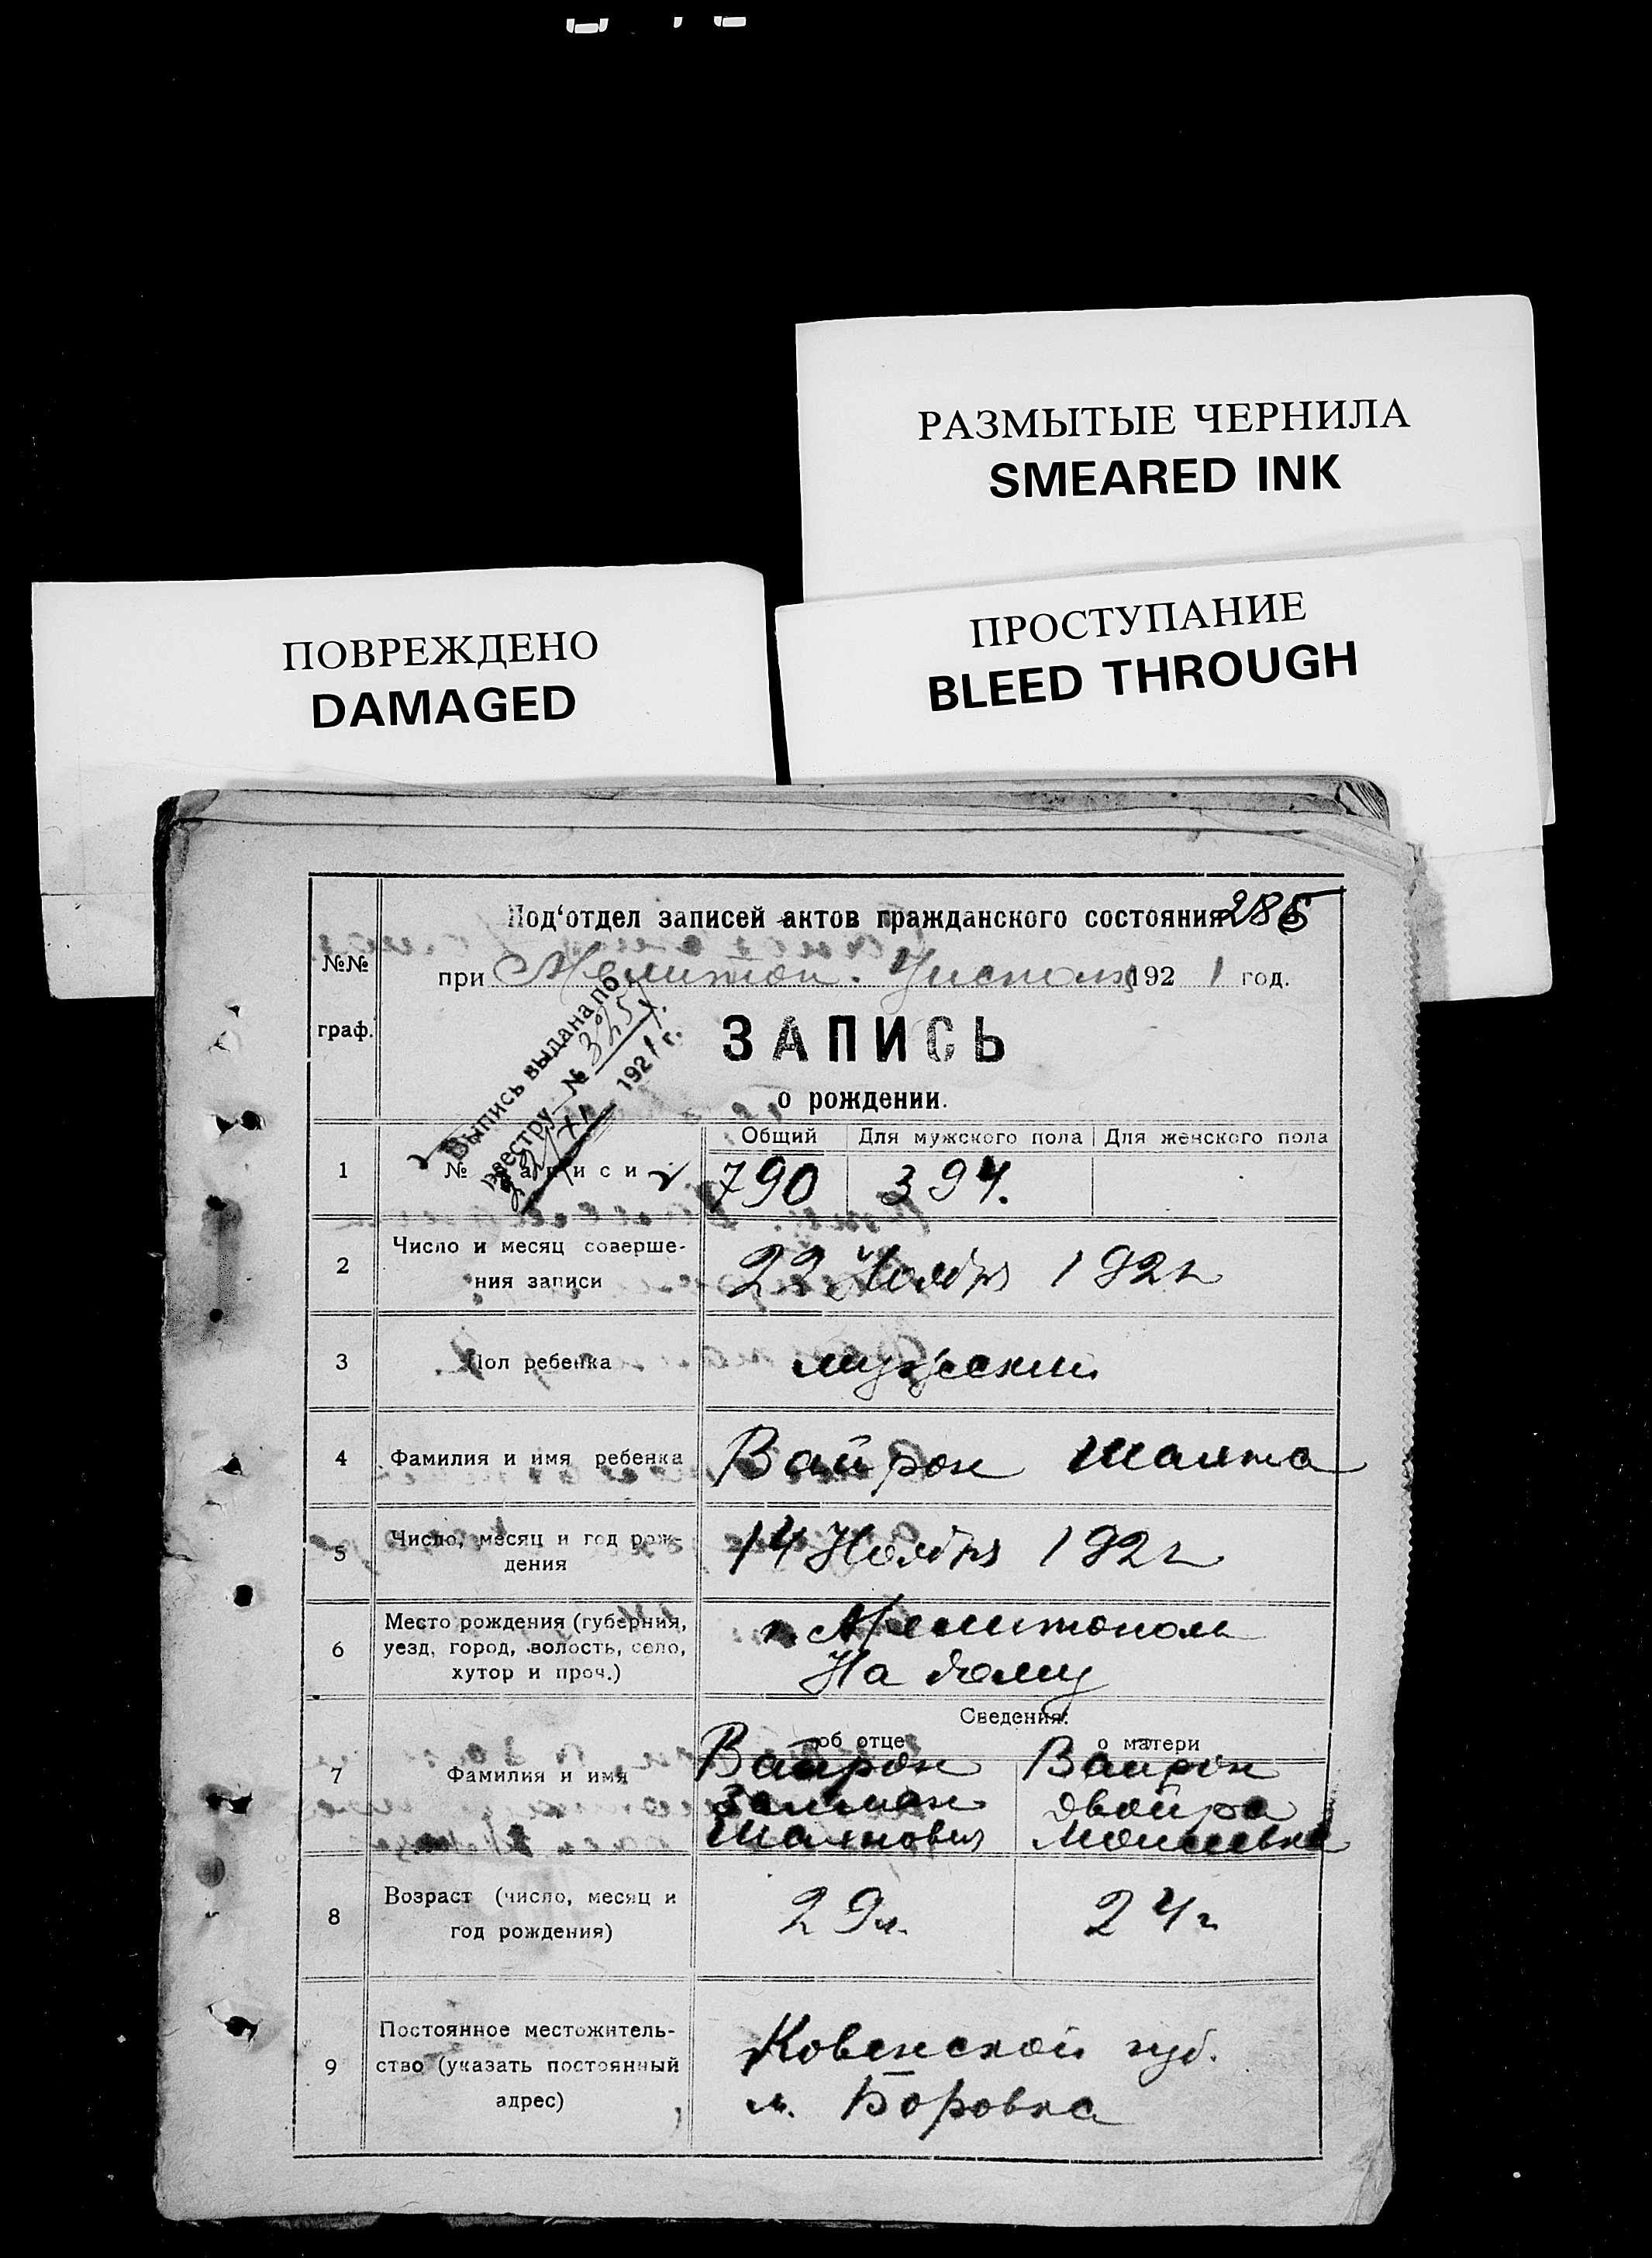 РАЗМЫТЫЕ ЧЕРНИЛА
SMEARED INK
ПРОСТУПАНИЕ
BLEED THROUGH
ПОВРЕЖДЕНО
DAMAGED
Под‘отдел записей актов гражданского состояния 285
№№ граф.
при Мелитоп. Исполк 192 1 год.
ЗАПИСЬ
о рождении.
Выпись выдана по
реестру № 3251
22/XI 1921 г.
Общий Для мужского пола Для женского пола
1 № записи 790 394.
2 Число и месяц соверше-
ния записи 22 Ноября 192 г
3 Пол ребенка мужской
4 Фамилия и имя ребенка Вайрон Шалма
5 Число, месяц и год рож-
дения 14 Ноября 192 г
6 Место рождения (губерния,
уезд, город, волость, село,
хутор и проч.)
г. Мелитополь
На дому
Сведения:
об отце о матери
7 Фамилия и имя
Вайрон Вайрон
Залман Двойра
Шалмович Моисеевна
8 Возраст (число, месяц и
год рождения) 29 л. 24 г
9 Постоянное местожитель-
ство (указать постоянный
адрес)
Ковенской губ.
м. Боровка